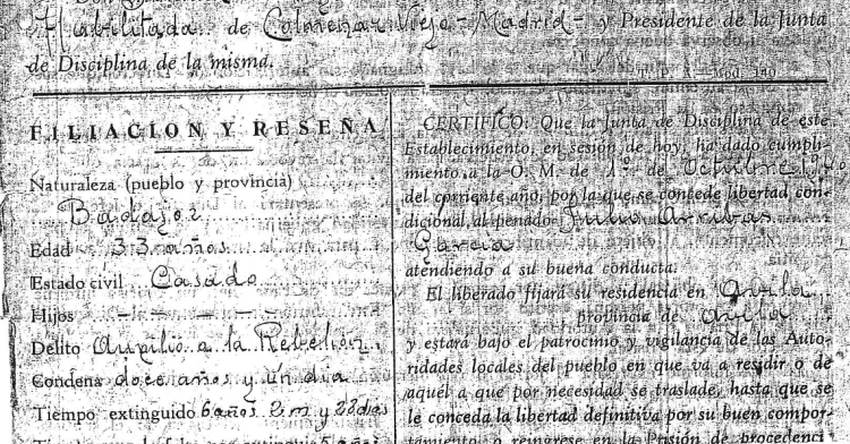 Habilitada de Colmenar Viejo - Madrid - y Presidente de la Junta
de Disciplina de la misma.
T. P. A.—Mod. 140
FILIACION Y RESEÑA
Naturaleza (pueblo y provincia)
Badajoz
Edad 33 años
Estado civil Casado
Hijos - - - -
Delito Auxilio a la Rebelión,
Condena doce años y un dia
Tiempo extinguido 6 años 2 m y 28 dias
CERTIFICO: Que la Junta de Disciplina de este
Establecimiento, en sesión de hoy, ha dado cumpli-
miento a la O. M. de 1º de Octubre
del corriente año, por la que se concede libertad con-
dicional al penado Julio Arribas
Garcia
atendiendo a su buena conducta.
El liberado fijará su residencia en Avila
provincia de Avila
y estará bajo el patrocinio y vigilancia de las Auto-
ridades locales del pueblo en que va a residir o de
aquel a que por necesidad se traslade, hasta que se
le conceda la libertad definitiva por su buen compor-
tamiento, o reingrese en la Prisión de procedenci